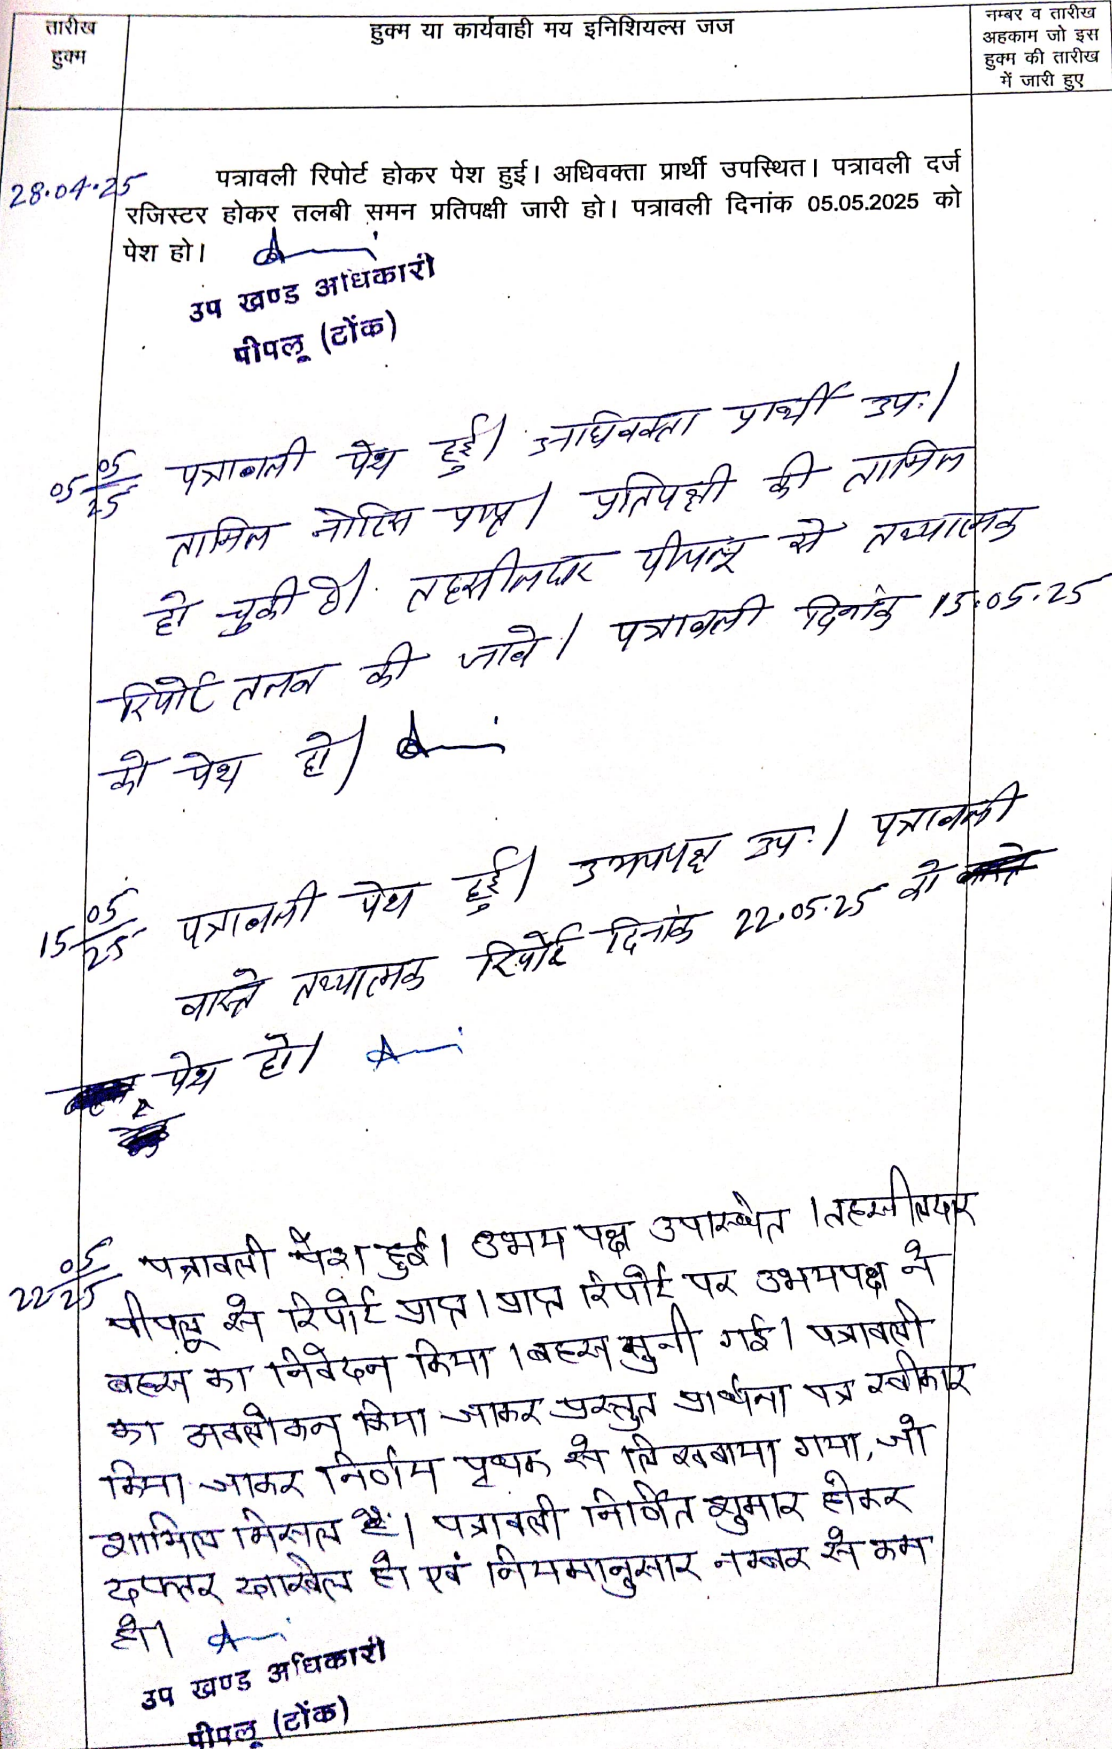 तारीख
हुक्म
हुक्म या कार्यवाही मय इनिशियल्स जज
नम्बर व तारीख
अहकाम जो इस
हुक्म की तारीख
में जारी हुए
28.04.25
पत्रावली रिपोर्ट होकर पेश हुई। अधिवक्ता प्रार्थी उपस्थित। पत्रावली दर्ज
रजिस्टर होकर तलबी समन प्रतिपक्षी जारी हो। पत्रावली दिनांक 05.05.2025 को
पेश हो।
उप खण्ड अधिकारी
पीपलू (टोंक)
05 05/25 पत्रावली पेश हुई। अधिवक्ता प्रार्थी उप:।
तामिल नोटिस प्राप्त। प्रतिपक्षी की तामिल
हो चुकी है। तहसीलदार पीपलू से तथ्यात्मक
रिपोर्ट तलब की जावे। पत्रावली दिनांक 15.05.25
को पेश हो।
15 05/25 पत्रावली पेश हुई। उभयपक्ष उप:। पत्रावली
वास्ते तथ्यात्मक रिपोर्ट दिनांक 22.05.25 को
पेश हो।
22 05/25 पत्रावली पेश हुई। उभय पक्ष उपस्थित। तहसीलदार
पीपलू से रिपोर्ट प्राप्त। प्राप्त रिपोर्ट पर उभयपक्ष ने
बहस का निवेदन किया। बहस सुनी गई। पत्रावली
का अवलोकन किया जाकर प्रस्तुत प्रार्थना पत्र स्वीकार
किया जाकर निर्णय पृथक से लिखवाया गया, जो
शामिल मिसल है। पत्रावली निर्णित शुमार होकर
दफ्तर दाखिल हो एवं नियमानुसार नम्बर से कम
हो।
उप खण्ड अधिकारी
पीपलू (टोंक)